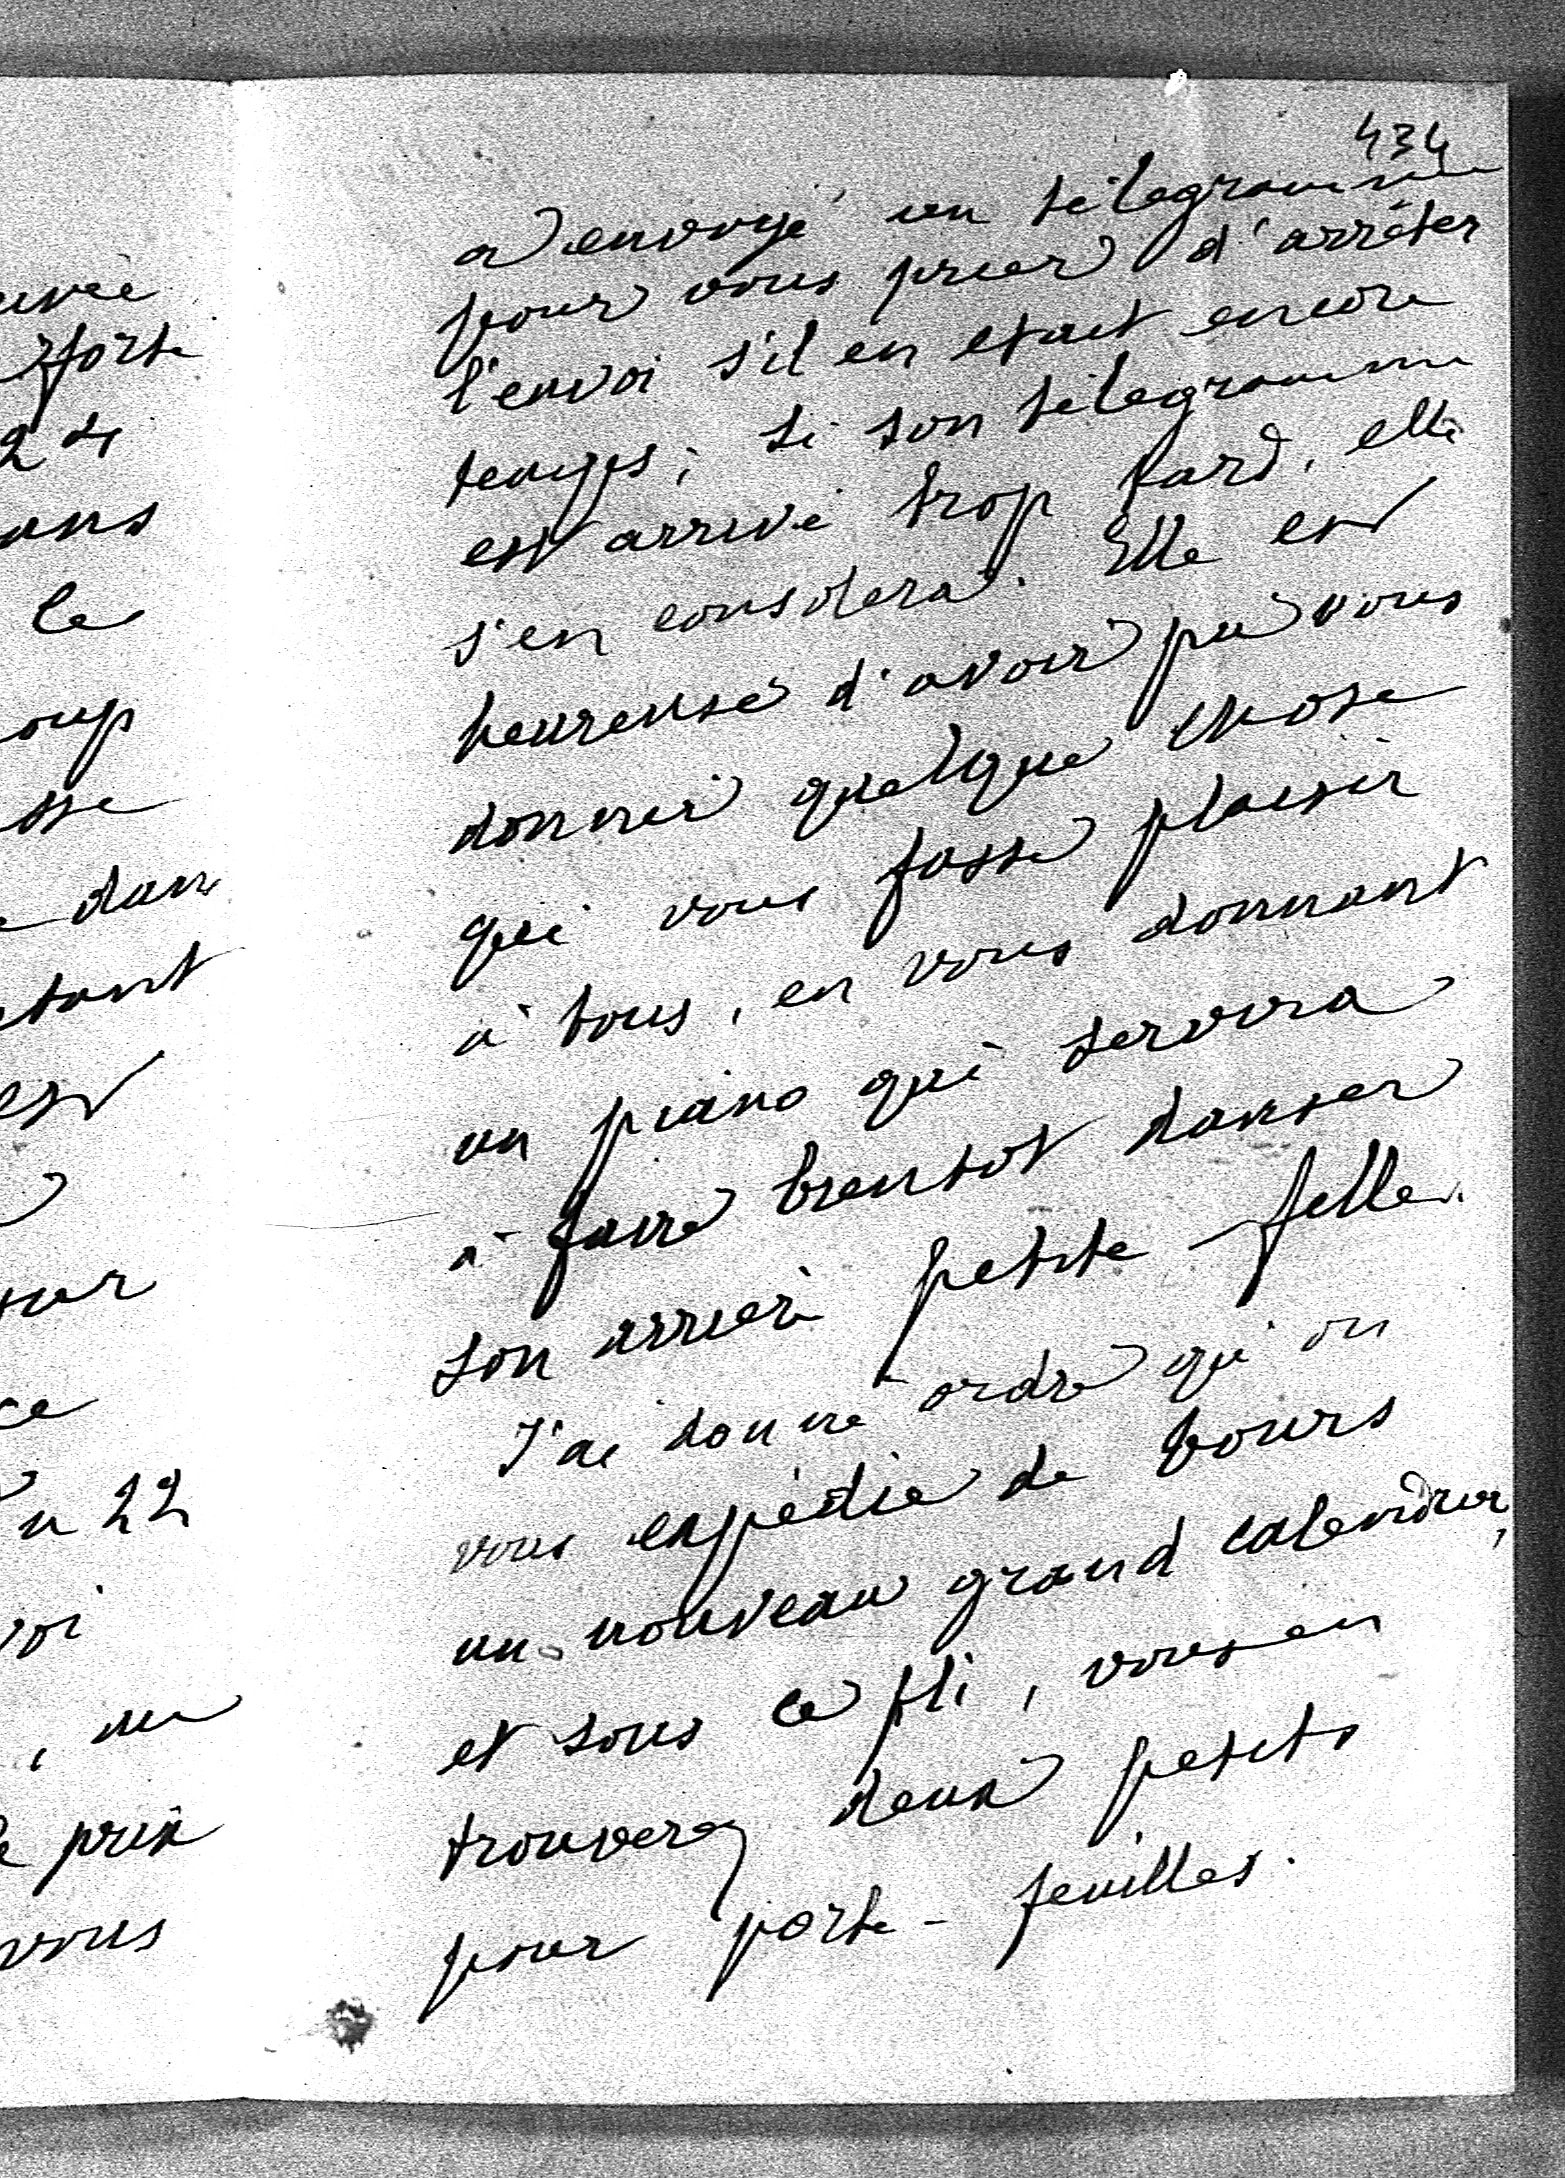 434
a envoyé un télegramme
pour vous prier d'arrêter
l'envoi s'il en etait encore
temps; si son télegramme
est arrivé trop tard, elle
s'en consolera. Elle est
heureuse d'avoir pu vous
donner quelque chose
qui vous fasse plaisir
à tous, en vous donnant
un piano qui servira
à faire bientot danser
son arrière petite-fille.
J'ai donné ordre qu'on
vous expédie de Tours
un nouveau grand calendrier,
et sous ce pli, vous en
trouverez deux petits
pour porte-feuilles.
forte
24
ans
le
oup
sse
dans
tant
est
sur
ce
u 22
voi
, me
prix
vous